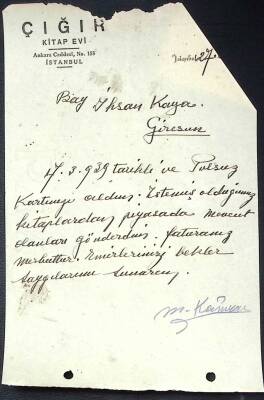 ÇIĞIR
KİTAP EVİ
Ankara Caddesi, No. 155
İSTANBUL
27
Bay İhsan Kaya.
Giresun
4.3.939 tarihli ve Pulsuz
Kartınızı aldım. İstemiş olduğunuz
kitaplardan piyasada mevcut
olanları gönderdim. Faturanız
merbuttur. Emirlerinizi bekler
saygılarımı sunarım.